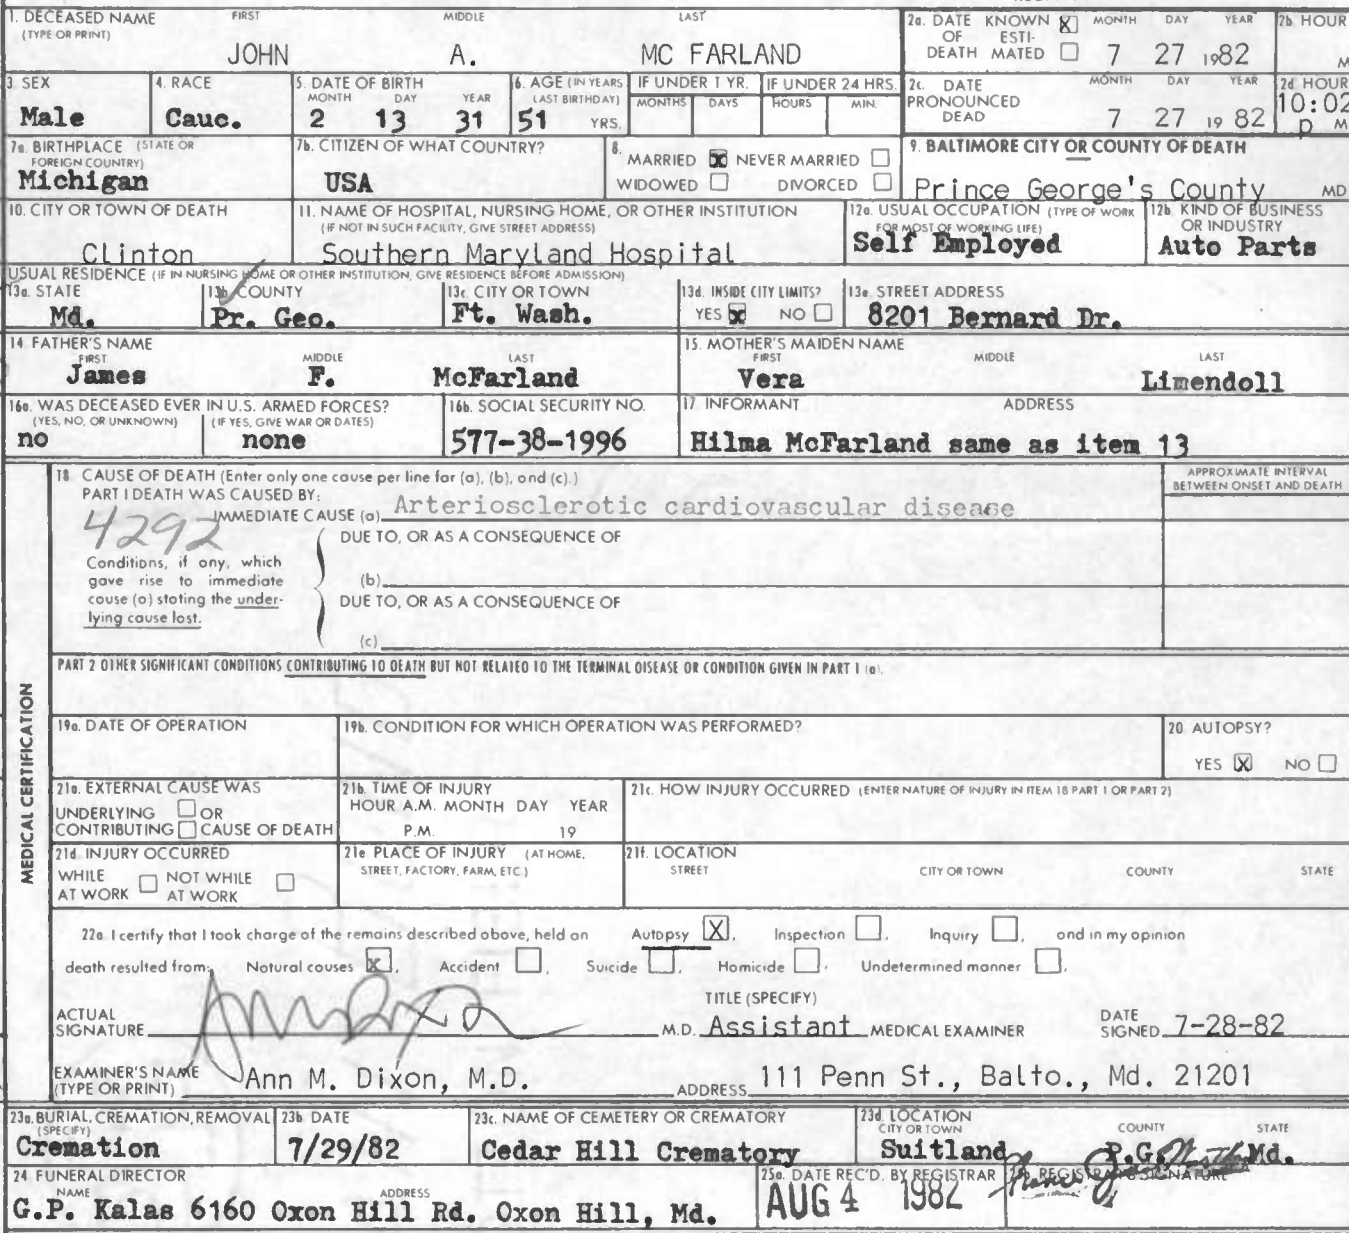 1. DECEASED NAME FIRST MIDDLE LAST
(TYPE OR PRINT)
JOHN A. MC FARLAND
2a. DATE OF DEATH KNOWN [X] ESTIMATED [ ] MONTH DAY YEAR 2b HOUR
7 27 1982 M
3. SEX 4. RACE 5. DATE OF BIRTH 6. AGE (IN YEARS LAST BIRTHDAY) IF UNDER 1 YR. IF UNDER 24 HRS.
MONTH DAY YEAR MONTHS DAYS HOURS MIN.
Male Cauc. 2 13 31 51 YRS.
2c. DATE PRONOUNCED DEAD MONTH DAY YEAR 2d HOUR
7 27 19 82 10:02 p M
7a. BIRTHPLACE (STATE OR FOREIGN COUNTRY)
Michigan
7b. CITIZEN OF WHAT COUNTRY?
USA
8. MARRIED [X] NEVER MARRIED [ ]
WIDOWED [ ] DIVORCED [ ]
9. BALTIMORE CITY OR COUNTY OF DEATH
Prince George's County MD
10. CITY OR TOWN OF DEATH
Clinton
11. NAME OF HOSPITAL, NURSING HOME, OR OTHER INSTITUTION
(IF NOT IN SUCH FACILITY, GIVE STREET ADDRESS)
Southern Maryland Hospital
12a. USUAL OCCUPATION (TYPE OF WORK
FOR MOST OF WORKING LIFE)
Self Employed
12b. KIND OF BUSINESS
OR INDUSTRY
Auto Parts
USUAL RESIDENCE (IF IN NURSING HOME OR OTHER INSTITUTION, GIVE RESIDENCE BEFORE ADMISSION)
13a. STATE 13b. COUNTY 13c. CITY OR TOWN 13d. INSIDE CITY LIMITS? 13e STREET ADDRESS
Md. Pr. Geo. Ft. Wash. YES [X] NO [ ] 8201 Bernard Dr.
14. FATHER'S NAME 15. MOTHER'S MAIDEN NAME
FIRST MIDDLE LAST FIRST MIDDLE LAST
James F. McFarland Vera Limendoll
16a. WAS DECEASED EVER IN U.S. ARMED FORCES? 16b. SOCIAL SECURITY NO. 17 INFORMANT ADDRESS
(YES, NO, OR UNKNOWN) (IF YES, GIVE WAR OR DATES)
no none 577-38-1996 Hilma McFarland same as item 13
MEDICAL CERTIFICATION
18 CAUSE OF DEATH (Enter only one cause per line for (a), (b), and (c).)
APPROXIMATE INTERVAL
BETWEEN ONSET AND DEATH
PART I DEATH WAS CAUSED BY:
IMMEDIATE CAUSE (a) Arteriosclerotic cardiovascular disease
4292
DUE TO, OR AS A CONSEQUENCE OF
Conditions, if any, which
gave rise to immediate
cause (a) stating the under-
lying cause last.
(b)
DUE TO, OR AS A CONSEQUENCE OF
(c)
PART 2 OTHER SIGNIFICANT CONDITIONS CONTRIBUTING TO DEATH BUT NOT RELATED TO THE TERMINAL DISEASE OR CONDITION GIVEN IN PART 1 (a).
19a. DATE OF OPERATION 19b. CONDITION FOR WHICH OPERATION WAS PERFORMED? 20 AUTOPSY?
YES [X] NO [ ]
21a. EXTERNAL CAUSE WAS
UNDERLYING [ ] OR
CONTRIBUTING [ ] CAUSE OF DEATH
21b. TIME OF INJURY
HOUR A.M. MONTH DAY YEAR
P.M. 19
21c. HOW INJURY OCCURRED (ENTER NATURE OF INJURY IN ITEM 18 PART 1 OR PART 2)
21d INJURY OCCURRED
WHILE AT WORK [ ] NOT WHILE AT WORK [ ]
21e PLACE OF INJURY (AT HOME,
STREET, FACTORY, FARM, ETC.)
21f. LOCATION
STREET CITY OR TOWN COUNTY STATE
22a I certify that I took charge of the remains described above, held an Autopsy [X], Inspection [ ], Inquiry [ ], and in my opinion
death resulted from: Natural causes [X], Accident [ ], Suicide [ ], Homicide [ ], Undetermined manner [ ].
ACTUAL SIGNATURE M.D. TITLE (SPECIFY) Assistant MEDICAL EXAMINER DATE SIGNED 7-28-82
EXAMINER'S NAME (TYPE OR PRINT) Ann M. Dixon, M.D. ADDRESS 111 Penn St., Balto., Md. 21201
23a. BURIAL, CREMATION, REMOVAL (SPECIFY) 23b DATE 23c. NAME OF CEMETERY OR CREMATORY 23d. LOCATION
CITY OR TOWN COUNTY STATE
Cremation 7/29/82 Cedar Hill Crematory Suitland P.G. Md.
24 FUNERAL DIRECTOR
NAME ADDRESS
G.P. Kalas 6160 Oxon Hill Rd. Oxon Hill, Md.
25a. DATE REC'D. BY REGISTRAR
AUG 4 1982
25b. REGISTRAR'S SIGNATURE